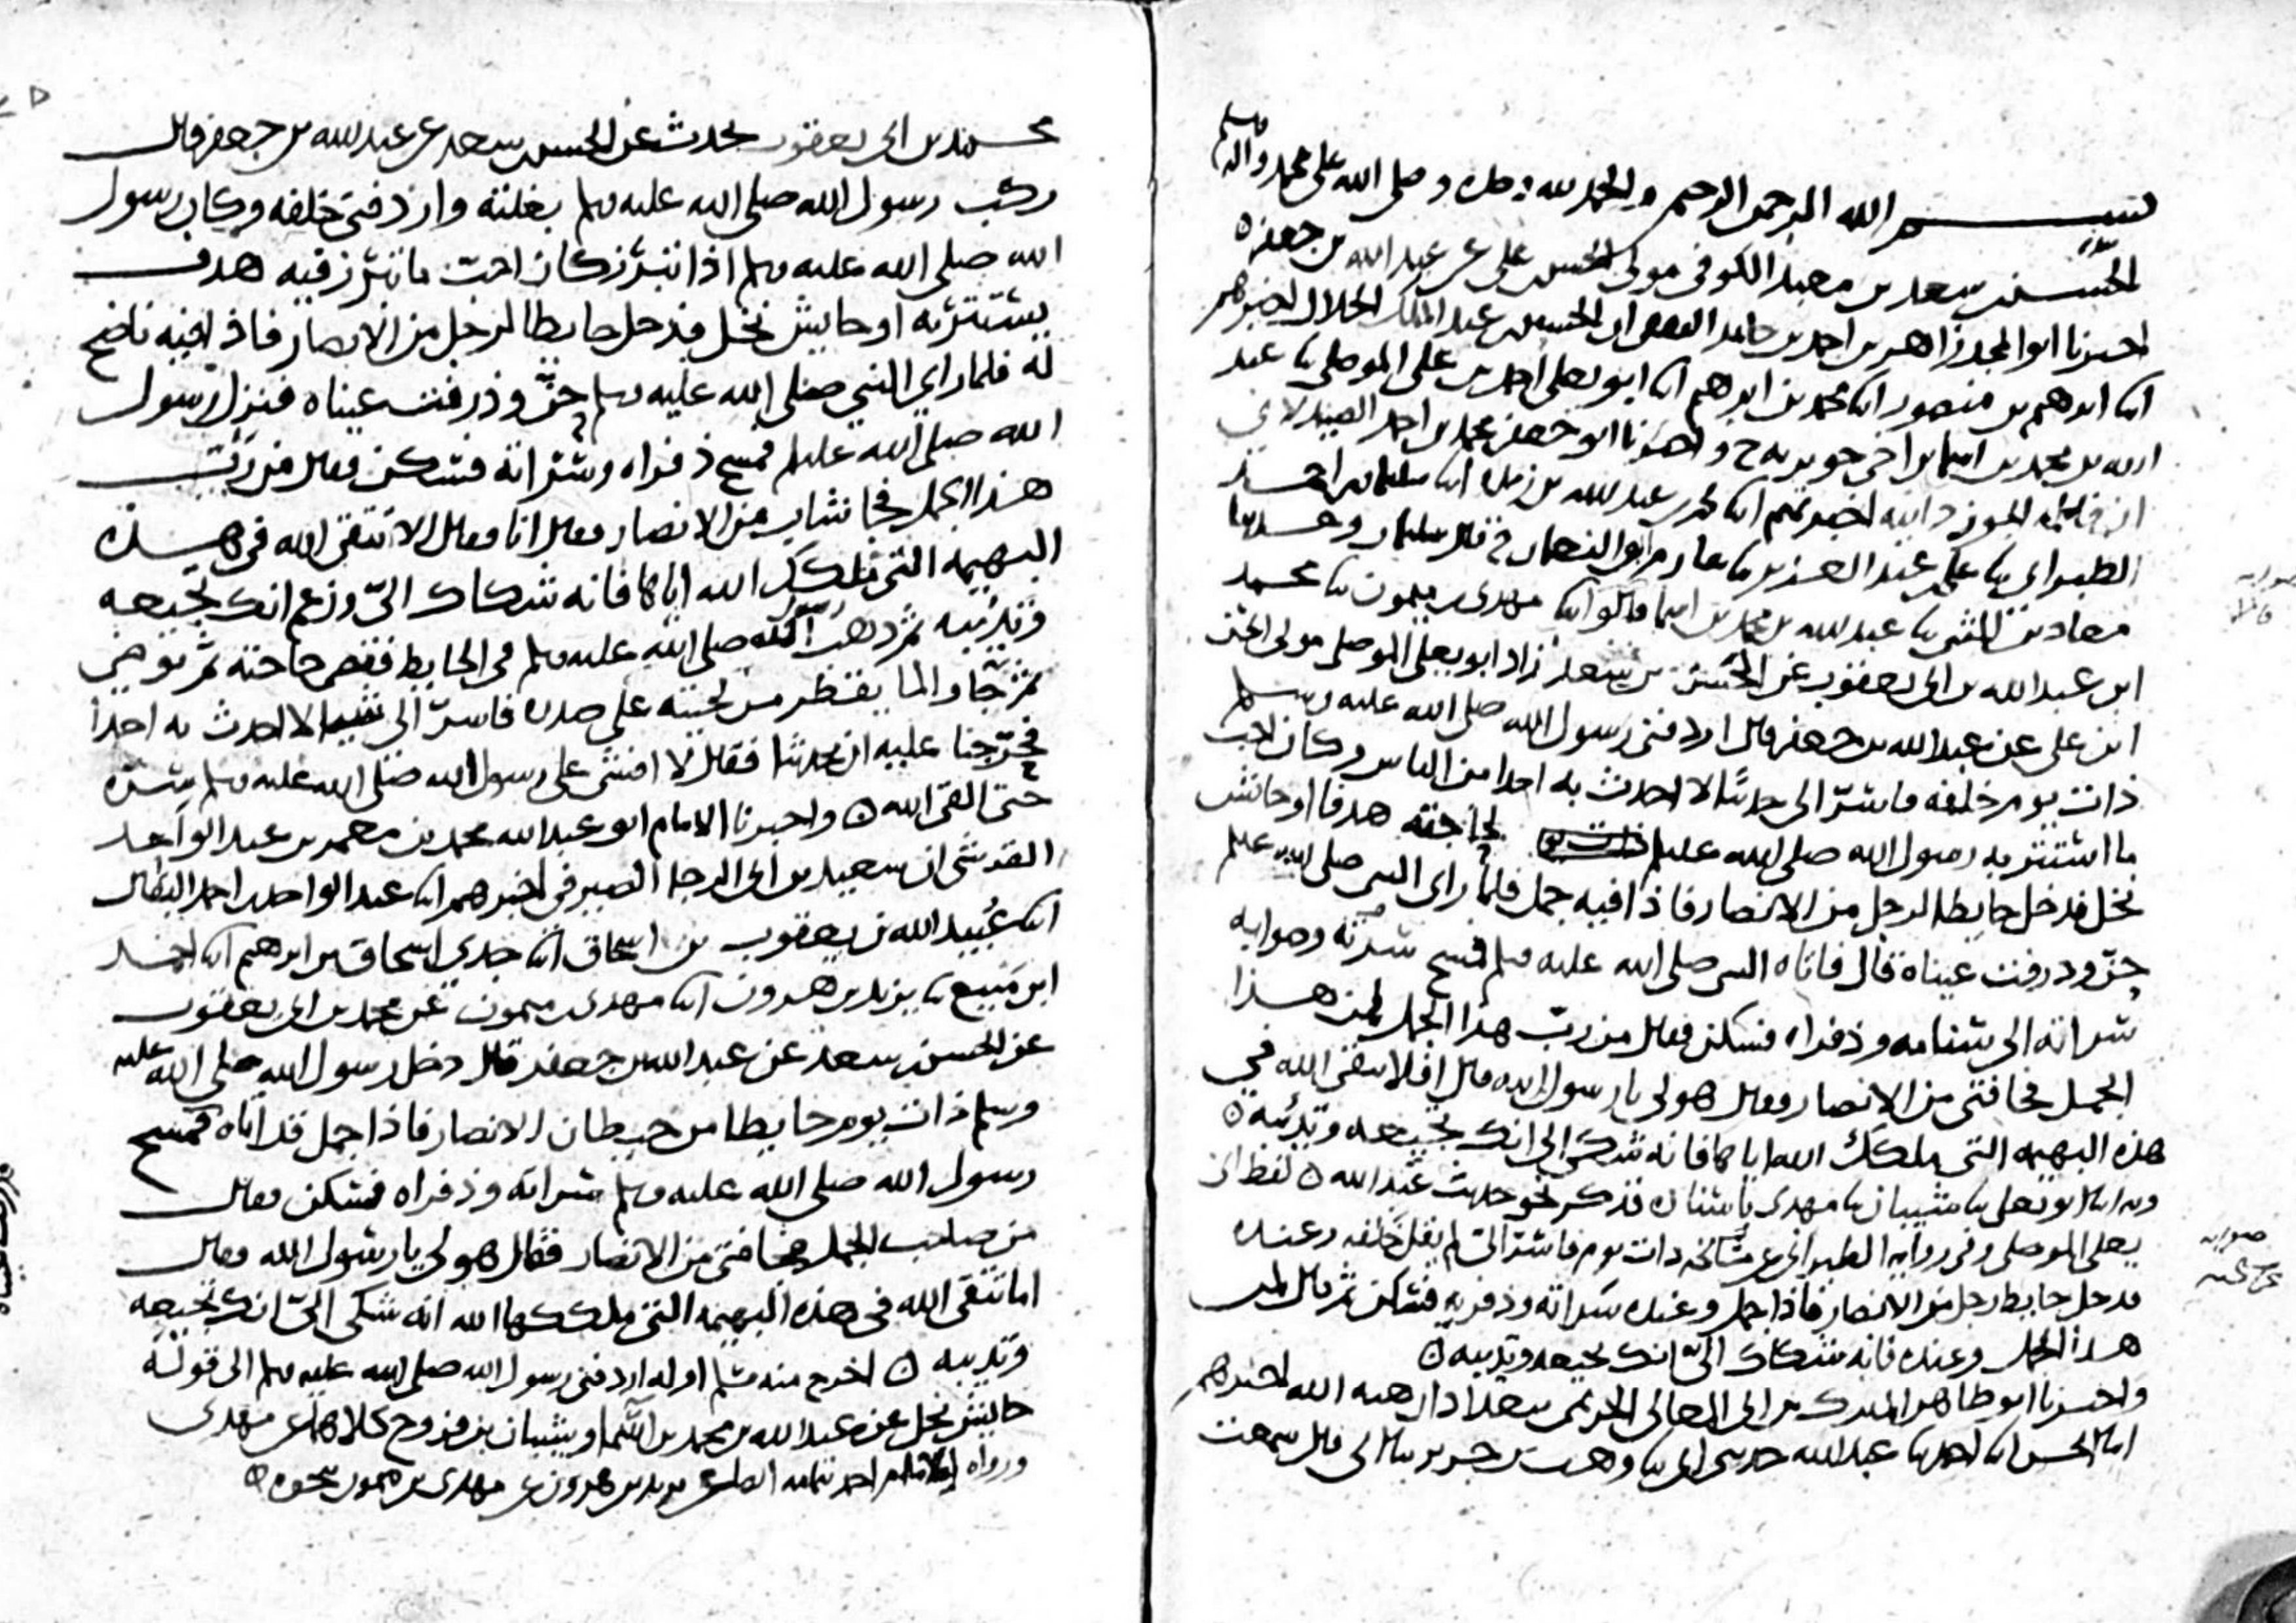 بسم الله الرحمن الرحيم والحمد لله وحده وصلى الله على محمد واله وسلم
الحسن بن سعد بن معبد الكوفي مولى الحسن بن علي عن عبد الله بن جعفر ه
اخبرنا ابو المجد زاهر بن احمد بن حامد الثقفي ان الحسين بن عبد الملك الخلال اخبرهم
ابنا ابرهيم بن منصور ابنا محمد بن ابرهيم ابنا ابو يعلى احمد بن علي الموصلي ثنا عبد
الله بن محمد بن اسما بن اخي جويريه ح واخبرنا ابو جعفر محمد بن احمد الصيدلاني
ان فاطمة الجوزدانيه اخبرتهم ابنا محمد بن عبد الله بن ريذه ابنا سليمان بن احمد
الطبراني ثنا علي بن عبد العزيز ثنا عارم ابو النعمان ح قال سليمان وحدثنا
معاذ بن المثنى ثنا عبد الله بن محمد بن اسما قالوا ابنا مهدي بن ميمون ثنا محمد
ابن عبد الله بن ابي يعقوب عن الحسن بن سعد زاد ابو يعلى الموصلي مولى الحسن
ابن علي عن عبد الله بن جعفر قال اردفني رسول الله صلى الله عليه وسلم
ذات يوم خلفه فاسر الي حديثا لا احدث به احدا من الناس وكان احب
ما استتر به رسول الله صلى الله عليه وسلم لحاجته هدفا او حائش
نخل فدخل حايطا لرجل من الانصار فاذا فيه جمل فلما راى النبي صلى الله عليه وسلم
حن وذرفت عيناه قال فاتاه النبي صلى الله عليه وسلم فمسح سرته وصوابه
سراته الى سنامه وذفراه فسكن فقال من رب هذا الجمل لمن هذا
الجمل فجا فتى من الانصار فقال هو لي يا رسول الله قال افلا تتقي الله في
هذه البهيمه التي ملكك الله اياها فانه شكى الي انك تجيعه وتدئبه ه
وبه ابنا ابو يعلى ثنا شيبان ثنا مهدي باسناده فذكر نحو حديث عبد الله ه لفظ ابي
يعلى الموصلي وفي رواية الطبراني عن مشايخه ذات يوم فاسر الي لم يقل خلفه وعنده
فدخل حايط رجل من الانصار فاذا جمل وعنده سراته وذفريه فسكن ثم قال لمن
هذا الجمل وعنده فانه شكاك الي انك تجيعه وتدئبه ه
واخبرنا ابو طاهر المبارك بن ابي المعالي الحريمي ببغداد ان هبه الله اخبرهم
ابنا الحسن ابنا احمد ثنا عبد الله حدثني ابي ثنا وهب بن جرير ثنا ابي قال سمعت
صوابه
صوابه
محمد بن ابي يعقوب يحدث عن الحسن بن سعد عن عبد الله بن جعفر قال
ركب رسول الله صلى الله عليه وسلم بغلته واردفني خلفه وكان رسول
الله صلى الله عليه وسلم اذا تبرز كان احب ما تبرز فيه هدف
يستتر به او حايش نخل فدخل حايطا لرجل من الانصار فاذا فيه ناضح
له فلما راى النبي صلى الله عليه وسلم حن وذرفت عيناه فنزل رسول
الله صلى الله عليه وسلم فمسح ذفراه وسراته فسكن فقال من رب
هذا الجمل فجا شاب من الانصار فقال انا فقال الا تتقي الله في هذه
البهيمه التي ملكك الله اياها فانه شكاك الي وزعم انك تجيعه
وتدئبه ثم ذهب رسول الله صلى الله عليه وسلم في الحايط فقضى حاجته ثم توضى
ثم جا والما يقطر من لحيته على صدره فاسر الي شيا لا احدث به احدا
فحرجنا عليه ان يحدثنا فقال لا افشي على رسول الله صلى الله عليه وسلم سره
حتى القى الله ه واخبرنا الامام ابو عبد الله محمد بن معمر بن عبد الواحد
القرشي ان سعيد بن ابي الرجا الصيرفي اخبرهم ابنا عبد الواحد بن احمد البقال
ابنا عبيد الله بن يعقوب بن اسحاق ابنا جدي اسحاق بن ابرهيم ابنا احمد
ابن منيع ثنا يزيد بن هرون ابنا مهدي بن ميمون عن محمد بن ابي يعقوب
عن الحسن بن سعد عن عبد الله بن جعفر قال دخل رسول الله صلى الله عليه
وسلم ذات يوم حايطا من حيطان الانصار فاذا جمل قد اتاه فمسح
رسول الله صلى الله عليه وسلم سراته وذفراه فسكن فقال
من صاحب الجمل فجا فتى من الانصار فقال هو لي يا رسول الله فقال
اما تتقي الله في هذه البهيمه التي ملككها الله انه شكى الي انك تجيعه
وتدئبه ه اخرج منه مسلم اوله اردفني رسول الله صلى الله عليه وسلم الى قوله
حايش نخل عن عبد الله بن محمد بن اسما وشيبان بن فروخ كلاهما عن مهدي
ورواه الامام احمد عن يزيد بن هرون عن مهدي بن ميمون بنحوه ه